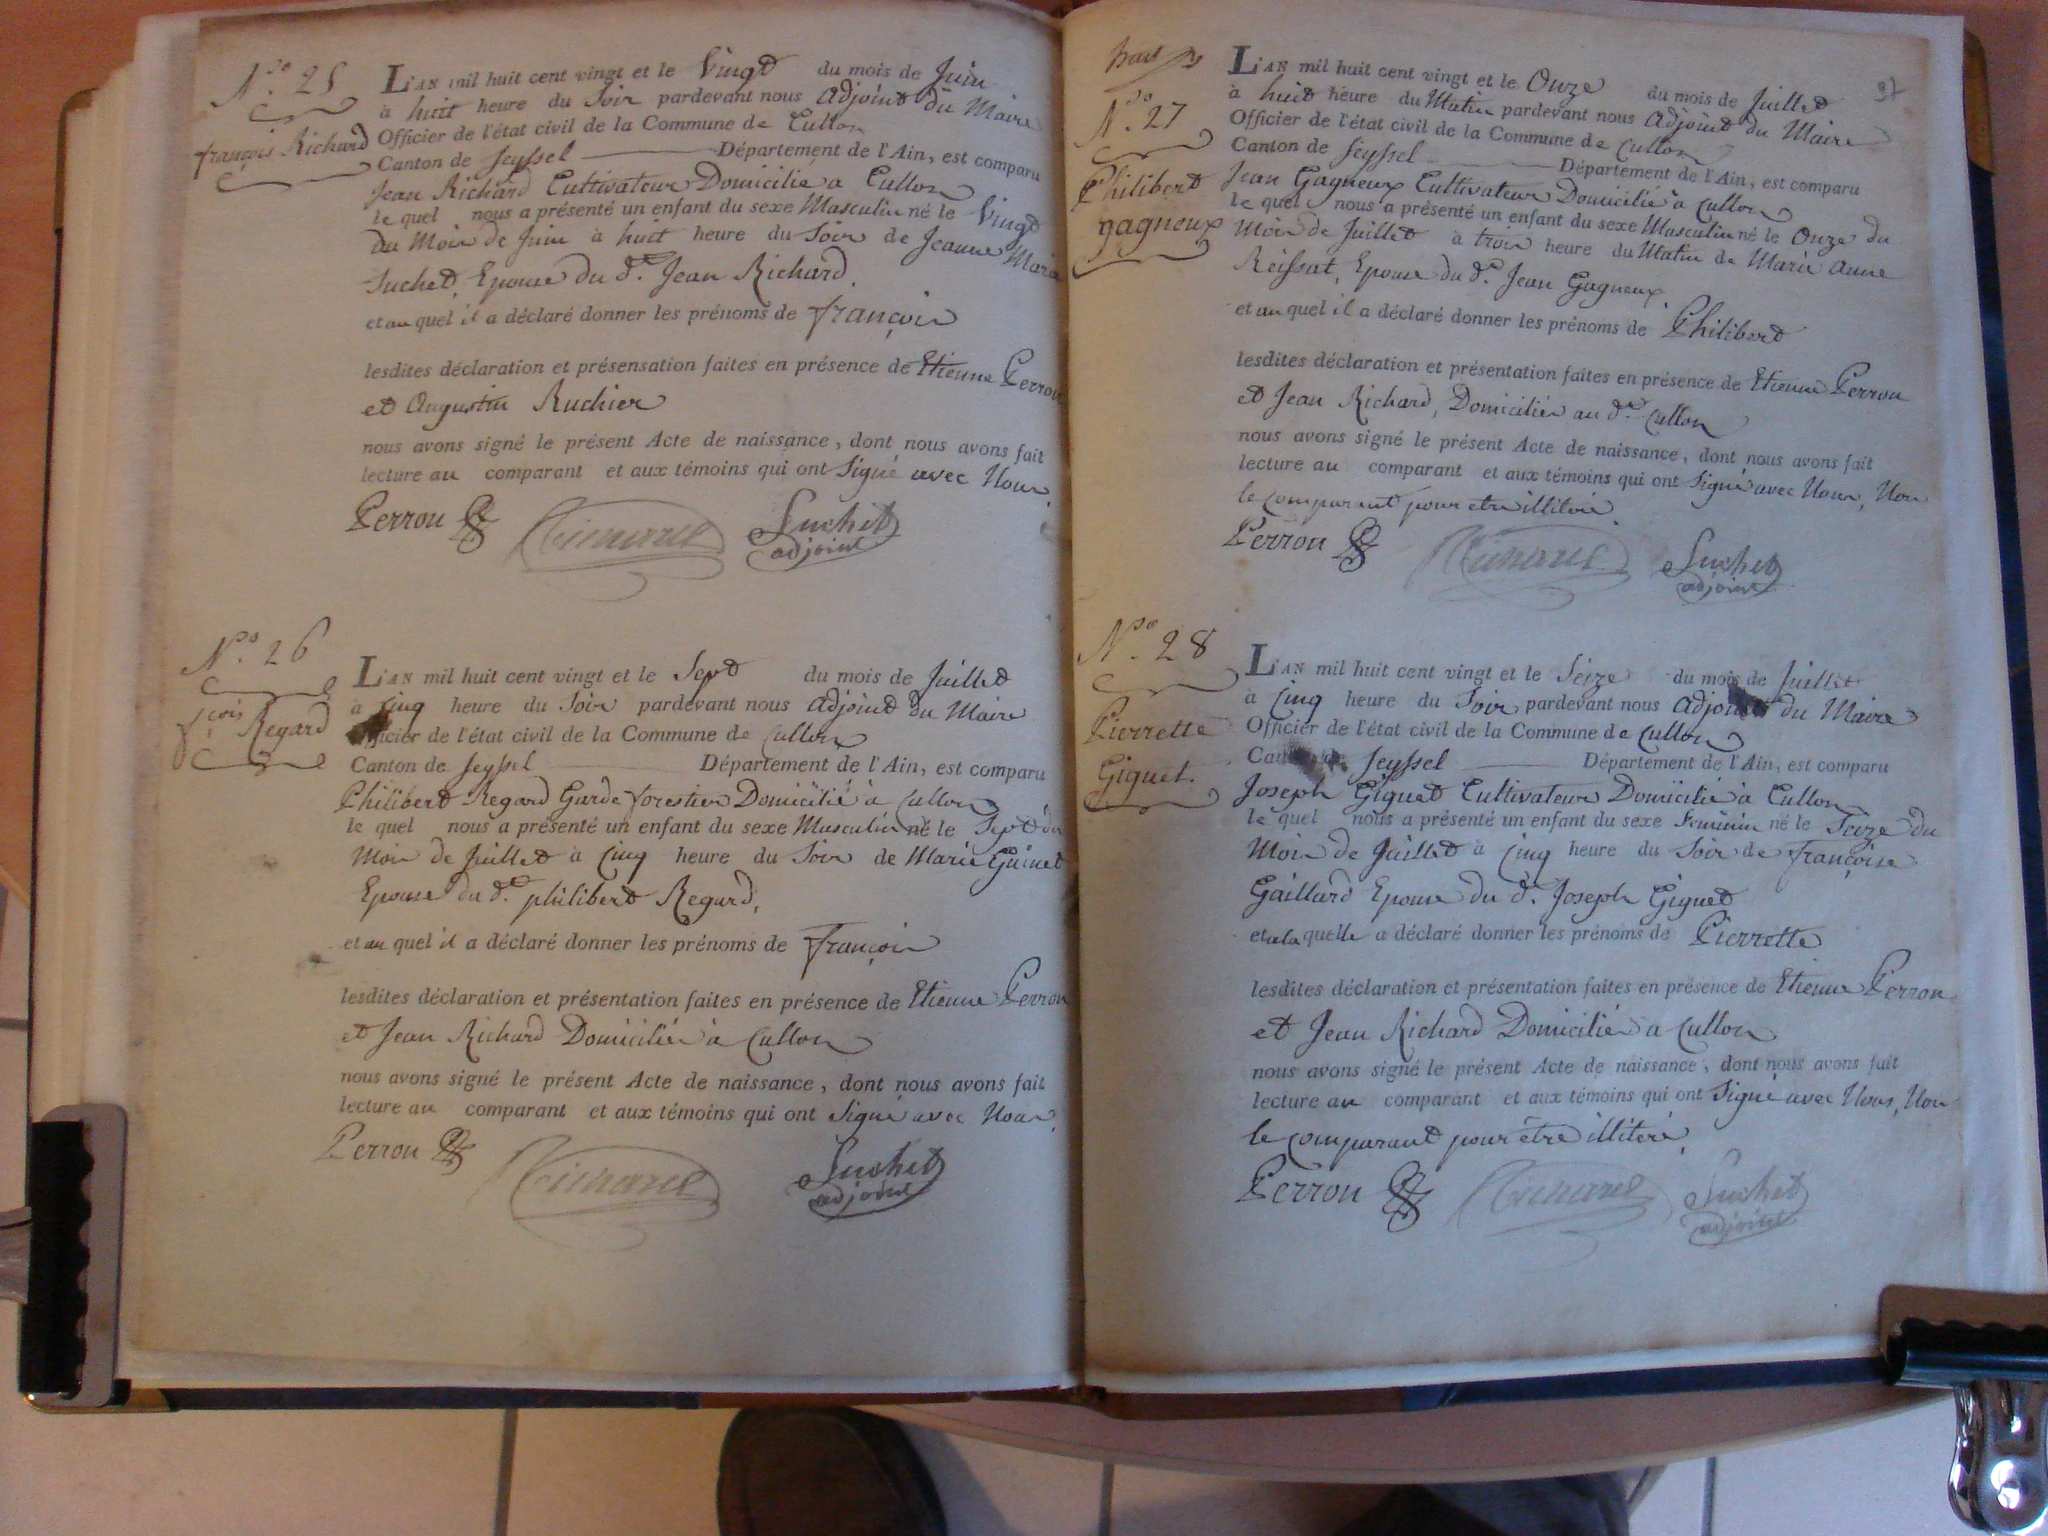 N.ro 25
françois Richard
L'AN mil huit cent vingt et le Vingt du mois de Juin
à huit heure du Soir pardevant nous Adjoint du Maire
Officier de l'état civil de la Commune de Cullon
Canton de Seyssel Département de l'Ain, est comparu
Jean Richard Cultivateur Domicilié a Cullon
le quel nous a présenté un enfant du sexe Masculin né le Vingt
du Mois de Juin à huit heure du Soir de Jeanne Marie
Suchet, Epouse du d.t Jean Richard
et au quel il a déclaré donner les prénoms de françois
lesdites déclaration et présensation faites en présence de Etienne Perron
et Augustin Ruchier
nous avons signé le présent Acte de naissance, dont nous avons fait
lecture au comparant et aux témoins qui ont Signé avec Nous.
Perron Suchet
adjoint
N.ro 26
f.çois Regard
L'AN mil huit cent vingt et le Sept du mois de Juillet
à Cinq heure du Soir pardevant nous Adjoint du Maire
Officier de l'état civil de la Commune de Cullon
Canton de Seyssel Département de l'Ain, est comparu
Philibert Regard Garde forestier Domicilié à Cullon
le quel nous a présenté un enfant du sexe Masculin né le Sept du
Mois de Juillet à Cinq heure du Soir de Marie Guinet
Epouse du d.t philibert Regard,
et au quel il a déclaré donner les prénoms de françois
lesdites déclaration et présentation faites en présence de Etienne Perron
et Jean Richard Domiciliés à Cullon
nous avons signé le présent Acte de naissance, dont nous avons fait
lecture au comparant et aux témoins qui ont Signé avec Nous,
Perron Suchet
adjoint
N.ro 27
Philibert
gagneux
L'AN mil huit cent vingt et le Onze du mois de Juillet
à huit heure du Matin pardevant nous Adjoint du Maire
Officier de l'état civil de la Commune de Cullon
Canton de Seyssel Département de l'Ain, est comparu
Jean Gagneux Cultivateur Domicilié à Cullon
le quel nous a présenté un enfant du sexe Masculin né le Onze du
Mois de Juillet à trois heure du Matin de Marie Anne
Reissat, Epouse du d.t Jean Gagneux
et au quel il a déclaré donner les prénoms de Philibert
lesdites déclaration et présentation faites en présence de Etienne Perron
et Jean Richard, Domiciliés au d.t Cullon
nous avons signé le présent Acte de naissance, dont nous avons fait
lecture au comparant et aux témoins qui ont Signé avec Nous, Non
le comparant pour etre illitéré
Perron Suchet
adjoint
N.ro 28
Pierrette
Giguet.
L'AN mil huit cent vingt et le Seize du mois de Juillet
à Cinq heure du Soir pardevant nous Adjoint du Maire
Officier de l'état civil de la Commune de Cullon
Canton de Seyssel Département de l'Ain, est comparu
Joseph Giguet Cultivateur Domicilié à Cullon
le quel nous a présenté un enfant du sexe Feminin né le Seize du
Mois de Juillet à Cinq heure du Soir de françoise
Gaillard Epouse du d.t Joseph Giguet
et a la quelle a déclaré donner les prénoms de Pierrette
lesdites déclaration et présentation faites en présence de Etienne Perron
et Jean Richard Domiciliés a Cullon
nous avons signé le présent Acte de naissance, dont nous avons fait
lecture au comparant et aux témoins qui ont Signé avec Nous, Non
le comparant pour être illiteré,
Perron Suchet
adjoint